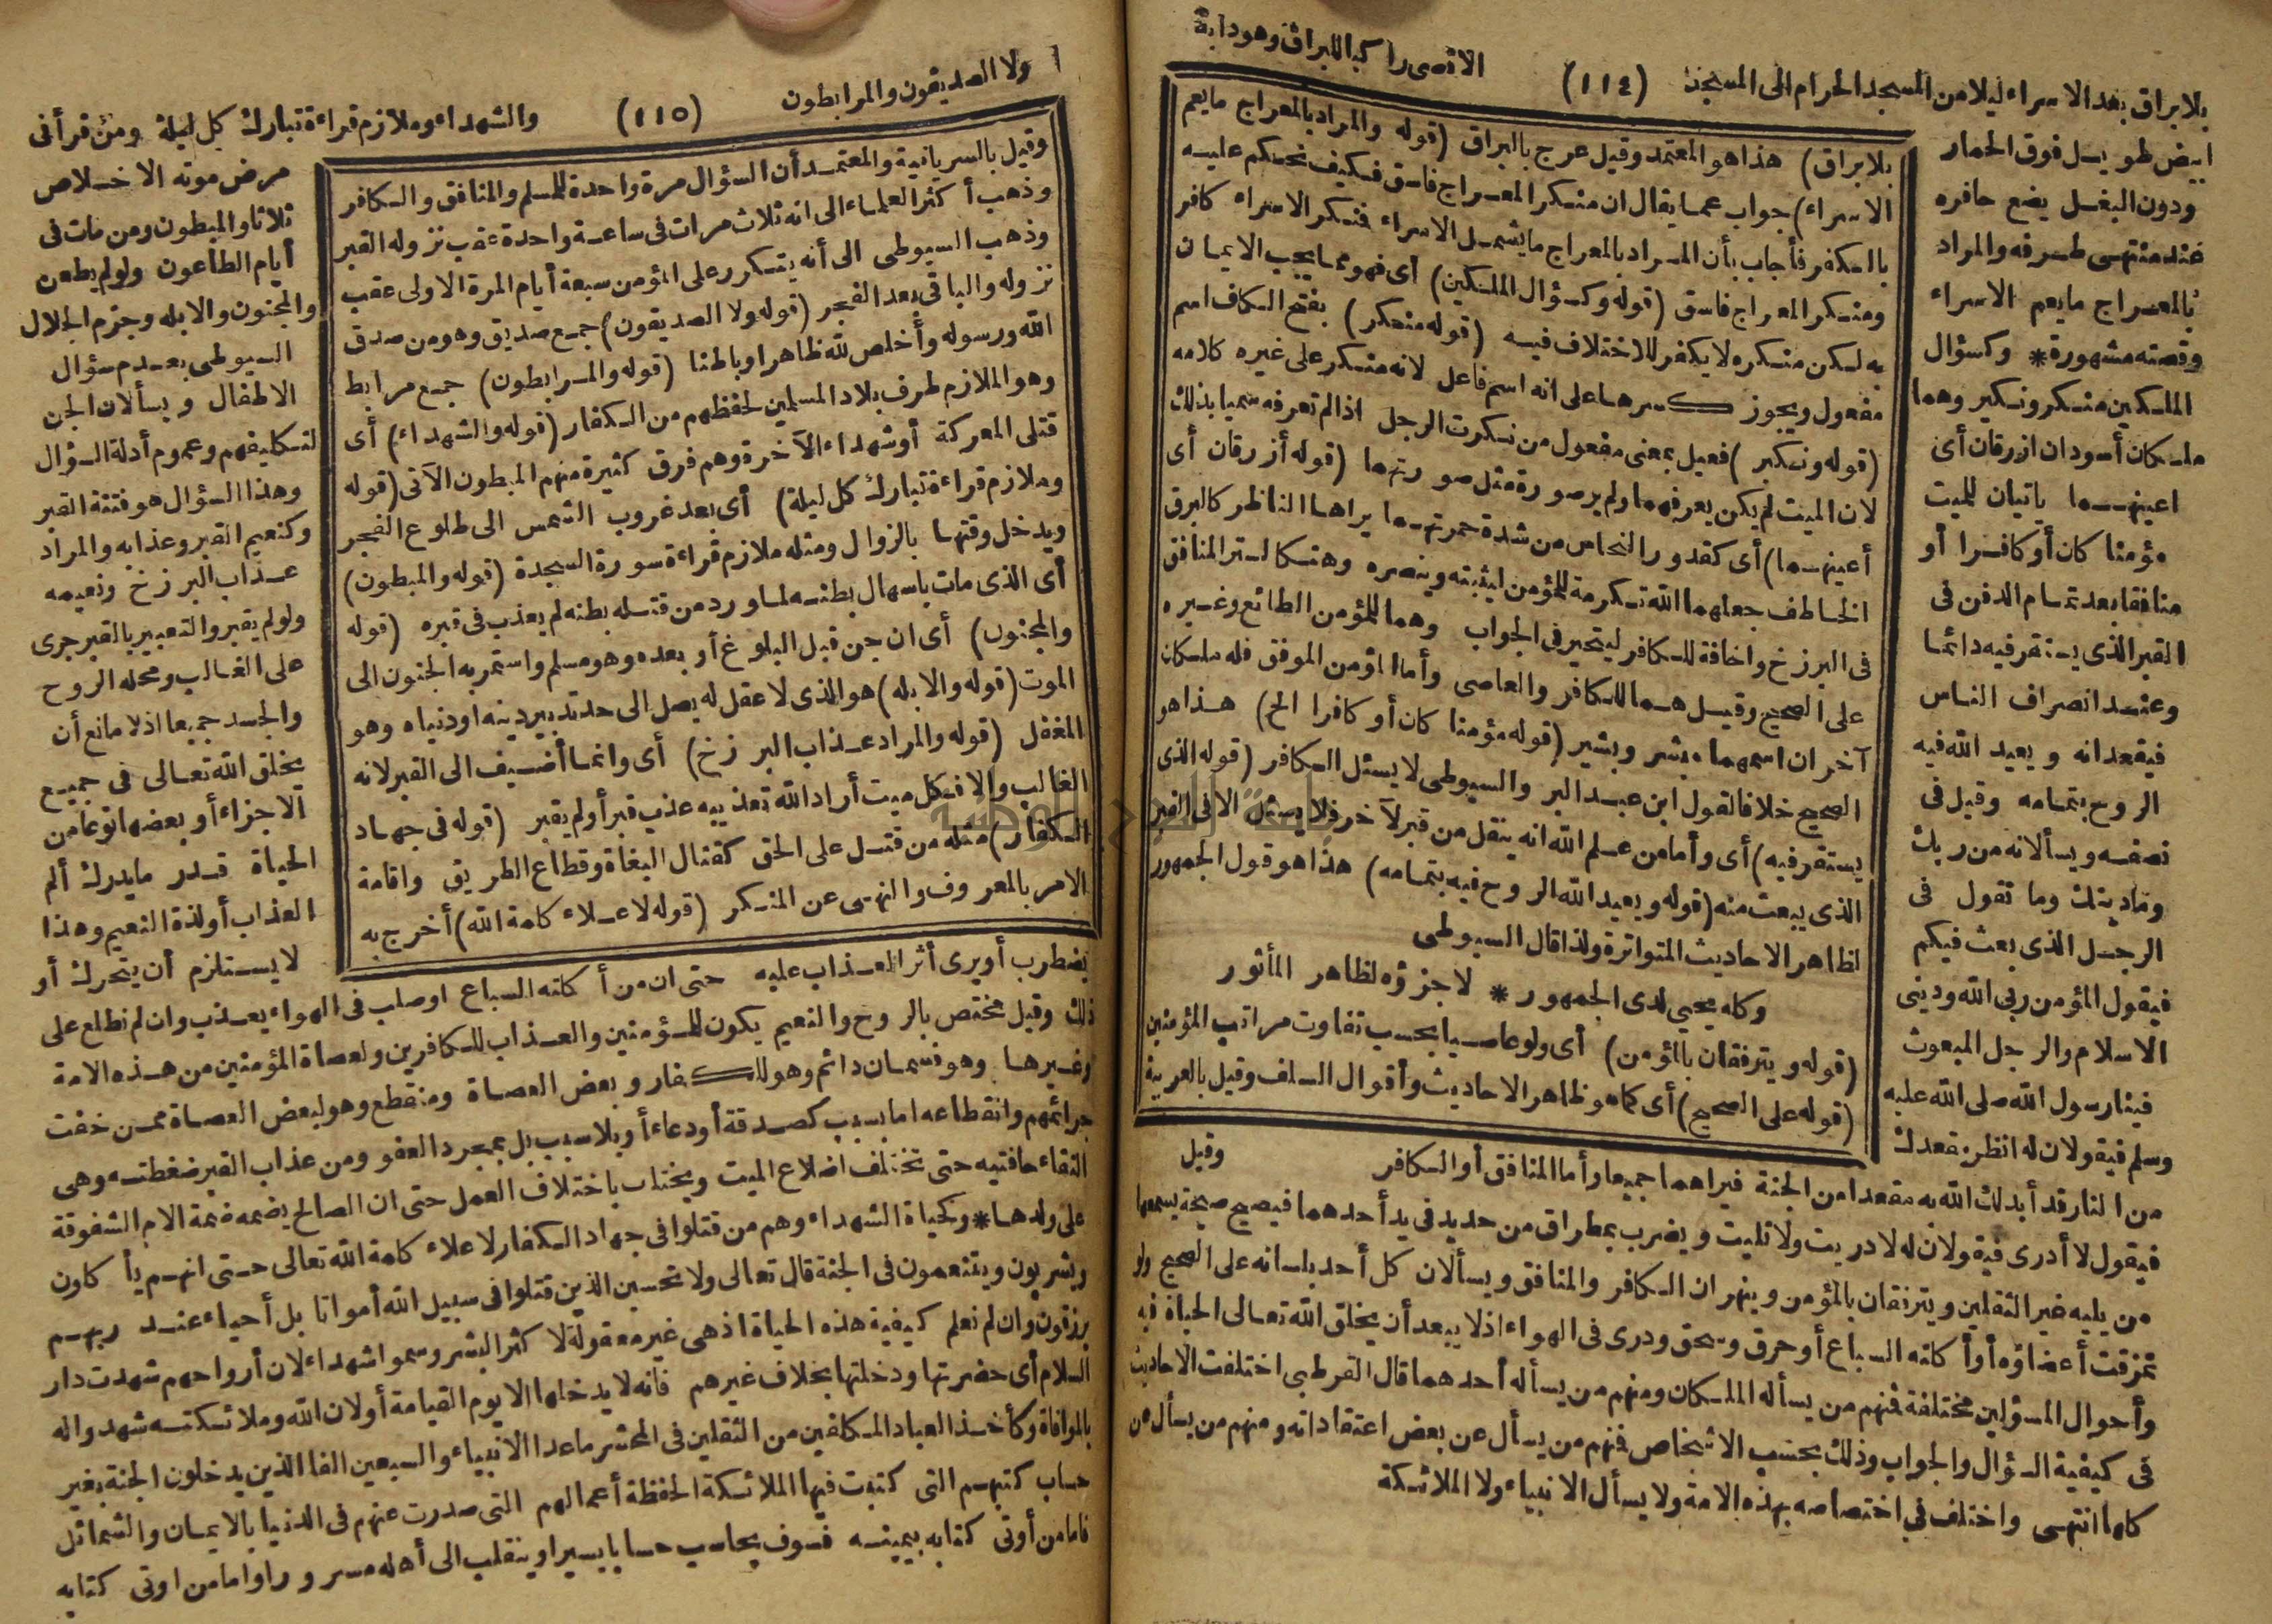 بلابراق بعد الاسراء ليلا من المسجد الحرام الى المسجد (١١٤) الاقصى راكب البراق وهو دابة
ابيض طويل فوق الحمار
ودون البغل يضع حافره
عند منتهى طرفه والمراد
بالمعراج ما يعم الاسراء
وقصته مشهورة * وكسؤال
الملكين منكر ونكير وهما
ملكان أسودان ازرقان أى
اعينهما ياتيان للميت
مؤمنا كان أو كافرا أو
منافقا بعد تمام الدفن فى
القبر الذى يستقر فيه دائما
وعند انصراف الناس
فيقعدانه ويعيد الله فيه
الروح بتمامه وقيل فى
نصفه ويسألانه من ربك
ومادينك وما تقول فى
الرجل الذى بعث فيكم
فيقول المؤمن ربى الله ودينى
الاسلام والرجل المبعوث
فينا رسول الله صلى الله عليه
وسلم فيقولان له انظر مقعدك
من النار قد أبدلك الله به مقعدا من الجنة فيراهما جميعا وأما المنافق أو الكافر
فيقول لا أدرى فيقولان له لا دريت ولا تليت ويضرب بمطراق من حديد فى يد أحدهما فيصيح صيحة يسمعها
من يليه غير الثقلين ويترفقان بالمؤمن وينهران الكافر والمنافق ويسألان كل أحد بلسانه على الصحيح ولو
تمزقت أعضاؤه أو أكلته السباع أو حرق وسحق وذرى فى الهواء اذ لا يبعد أن يخلق الله تعالى الحياة فيه
وأحوال المسؤلين مختلفة فنهم من يسأله الملكان ومنهم من يسأله أحدهما قال القرطبى اختلفت الاحاديث
فى كيفية السؤال والجواب وذلك بحسب الاشخاص فنهم من يسأل عن بعض اعتقاداته ومنهم من يسأل عن
كلها انتهى واختلف فى اختصاصه بهذه الامة ولا يسأل الانبياء ولا الملائكة
بلابراق) هذا هو المعتمد وقيل عرج بالبراق (قوله والمراد بالمعراج ما يعم
الاسراء) جواب عما يقال ان منكر المعراج فاسق فكيف نحكم عليه
بالكفر فأجاب بأن المراد بالمعراج ما يشمل الاسراء فنكر الاسراء كافر
ومنكر المعراج فاسق (قوله وكسؤال الملكين) أى فهو مما يجب الايمان
به لكن منكره لا يكفر للاختلاف فيه (قوله منكر) بفتح الكاف اسم
مفعول ويجوز كسرها على انه اسم فاعل لانه منكر على غيره كلامه
(قوله ونكير) فعيل بمعنى مفعول من نكرت الرجل اذا لم تعرفه سميا بذلك
لان الميت لم يكن يعرفهما ولم ير صورة مثل صورتهما (قوله أزرقان أى
أعينهما) أى كقدور النحاس من شدة حمرتهما يراها الناظر كالبرق
الخاطف جعلهما الله تكرمة للمؤمن ليثبته وينصره وهتكا لستر المنافق
فى البرزخ واخافة للكافر ليتحير فى الجواب وهما للمؤمن الطائع وغيره
على الصحيح وقيل هما للكافر والعاصى وأما المؤمن الموفق فله ملكان
آخران اسمهما مبشر وبشير (قوله مؤمنا كان أو كافرا الخ) هذا هو
الصحيح خلافا لقول ابن عبد البر والسيوطى لا يسئل الكافر (قوله الذى
يستقر فيه) أى وأما من علم الله انه ينقل من قبر لآخر فلا يسئل الا فى القبر
الذى يبعث منه (قوله ويعيد الله الروح فيه بتمامه) هذا هو قول الجمهور
لظاهر الاحاديث المتواترة ولذا قال السيوطى
وكله يحيى لدى الجمهور * لا جزؤه لظاهر المأثور
(قوله ويترفقان بالمؤمن) أى ولو عاصيا بحسب تفاوت مراتب المؤمنين
(قوله على الصحيح) أى كما هو ظاهر الاحاديث وأقوال السلف وقيل بالعربية
وقيل
ولا الصديقون والمرابطون (١١٥) والشهداء وملازم قراءة تبارك كل ليلة ومن قرأ فى
مرض موته الاخلاص
ثلاثا والمبطون ومن مات فى
أيام الطاعون ولو لم يطعن
والمجنون والابله وجزم الجلال
السيوطى بعدم سؤال
الاطفال ويسألان الجن
لتكليفهم وعموم أدلة السؤال
وهذا السؤال هو فتنة القبر
وكنعيم القبر وعذابه والمراد
عذاب البرزخ ونعيمه
ولو لم يقبر والتعبير بالقبر جرى
على الغالب ومحله الروح
والجسد جميعا اذ لا مانع أن
يخلق الله تعالى فى جميع
الاجزاء أو بعضها نوعا من
الحياة قدر ما يدرك ألم
العذاب أو لذة النعيم وهذا
لا يستلزم أن يتحرك أو
يضطرب أو يرى أثر العذاب عليه حتى ان من أكلته السباع او صلب فى الهواء يعذب وان لم نطلع على
ذلك وقيل مختص بالروح والنعيم يكون للمؤمنين والعذاب للكافرين ولعصاة المؤمنين من هذه الامة
وغيرها وهو قسمان دائم وهو للكفار وبعض العصاة ومنقطع وهو لبعض العصاة ممن خفت
جرائمهم وانقطاعه اما بسبب كصدقة أو دعاء أو بلا سبب بل بمجرد العفو ومن عذاب القبر ضغطته وهى
التقاء حافتيه حتى تختلف اضلاع الميت ويختلف باختلاف العمل حتى ان الصالح يضمه ضمة الام الشفوقة
على ولدها * وكحياة الشهداء وهم من قتلوا فى جهاد الكفار لاعلاء كلمة الله تعالى حتى انهم يأكلون
ويشربون ويتنعمون فى الجنة قال تعالى ولا تحسبن الذين قتلوا فى سبيل الله أمواتا بل أحياء عند ربهم
يرزقون وان لم نعلم كيفية هذه الحياة اذ هى غير معقولة لاكثر البشر وسموا شهداء لان أرواحهم شهدت دار
السلام أى حضرتها ودخلتها بخلاف غيرهم فانه لا يدخلها الا يوم القيامة أو لان الله وملائكته شهدوا له
بالموافاة وكأخذ العباد المكلفين من الثقلين فى المحشر ماعدا الانبياء والسبعين الفا الذين يدخلون الجنة بغير
حساب كتبهم التى كتبت فيها الملائكة الحفظة أعمالهم التى صدرت عنهم فى الدنيا بالايمان والشمائل
فاما من أوتى كتابه بيمينه فسوف يحاسب حسابا يسيرا وينقلب الى أهله مسرورا واما من اوتى كتابه
وقيل بالسريانية والمعتمد أن السؤال مرة واحدة للمسلم والمنافق والكافر
وذهب أكثر العلماء الى انه ثلاث مرات فى ساعة واحدة عقب نزوله القبر
وذهب السيوطى الى أنه يتكرر على المؤمن سبعة أيام المرة الاولى عقب
نزوله والباقى بعد الفجر (قوله ولا الصديقون) جمع صديق وهو من صدق
الله ورسوله وأخلص لله ظاهرا وباطنا (قوله والمرابطون) جمع مرابط
وهو الملازم طرف بلاد المسلمين لحفظهم من الكفار (قوله والشهداء) أى
قتلى المعركة أو شهداء الآخرة وهم فرق كثيرة منهم المبطون الآتى (قوله
وملازم قراءة تبارك كل ليلة) أى بعد غروب الشمس الى طلوع الفجر
ويدخل وقتها بالزوال ومثله ملازم قراءة سورة السجدة (قوله والمبطون)
أى الذى مات باسهال بطنه لما ورد من قتله بطنه لم يعذب فى قبره (قوله
والمجنون) أى ان جن قبل البلوغ أو بعده وهو مسلم واستمر به الجنون الى
الموت (قوله والابله) هو الذى لا عقل له يصل الى حد تدبير دينه او دنياه وهو
المغفل (قوله والمراد عذاب البرزخ) أى وانما أضيف الى القبر لانه
الغالب والا فكل ميت أراد الله تعذيبه عذب قبر أو لم يقبر (قوله فى جهاد
الكفار) مثله من قتل على الحق كقتال البغاة وقطاع الطريق واقامة
الامر بالمعروف والنهى عن المنكر (قوله لاعلاء كلمة الله) أخرج به